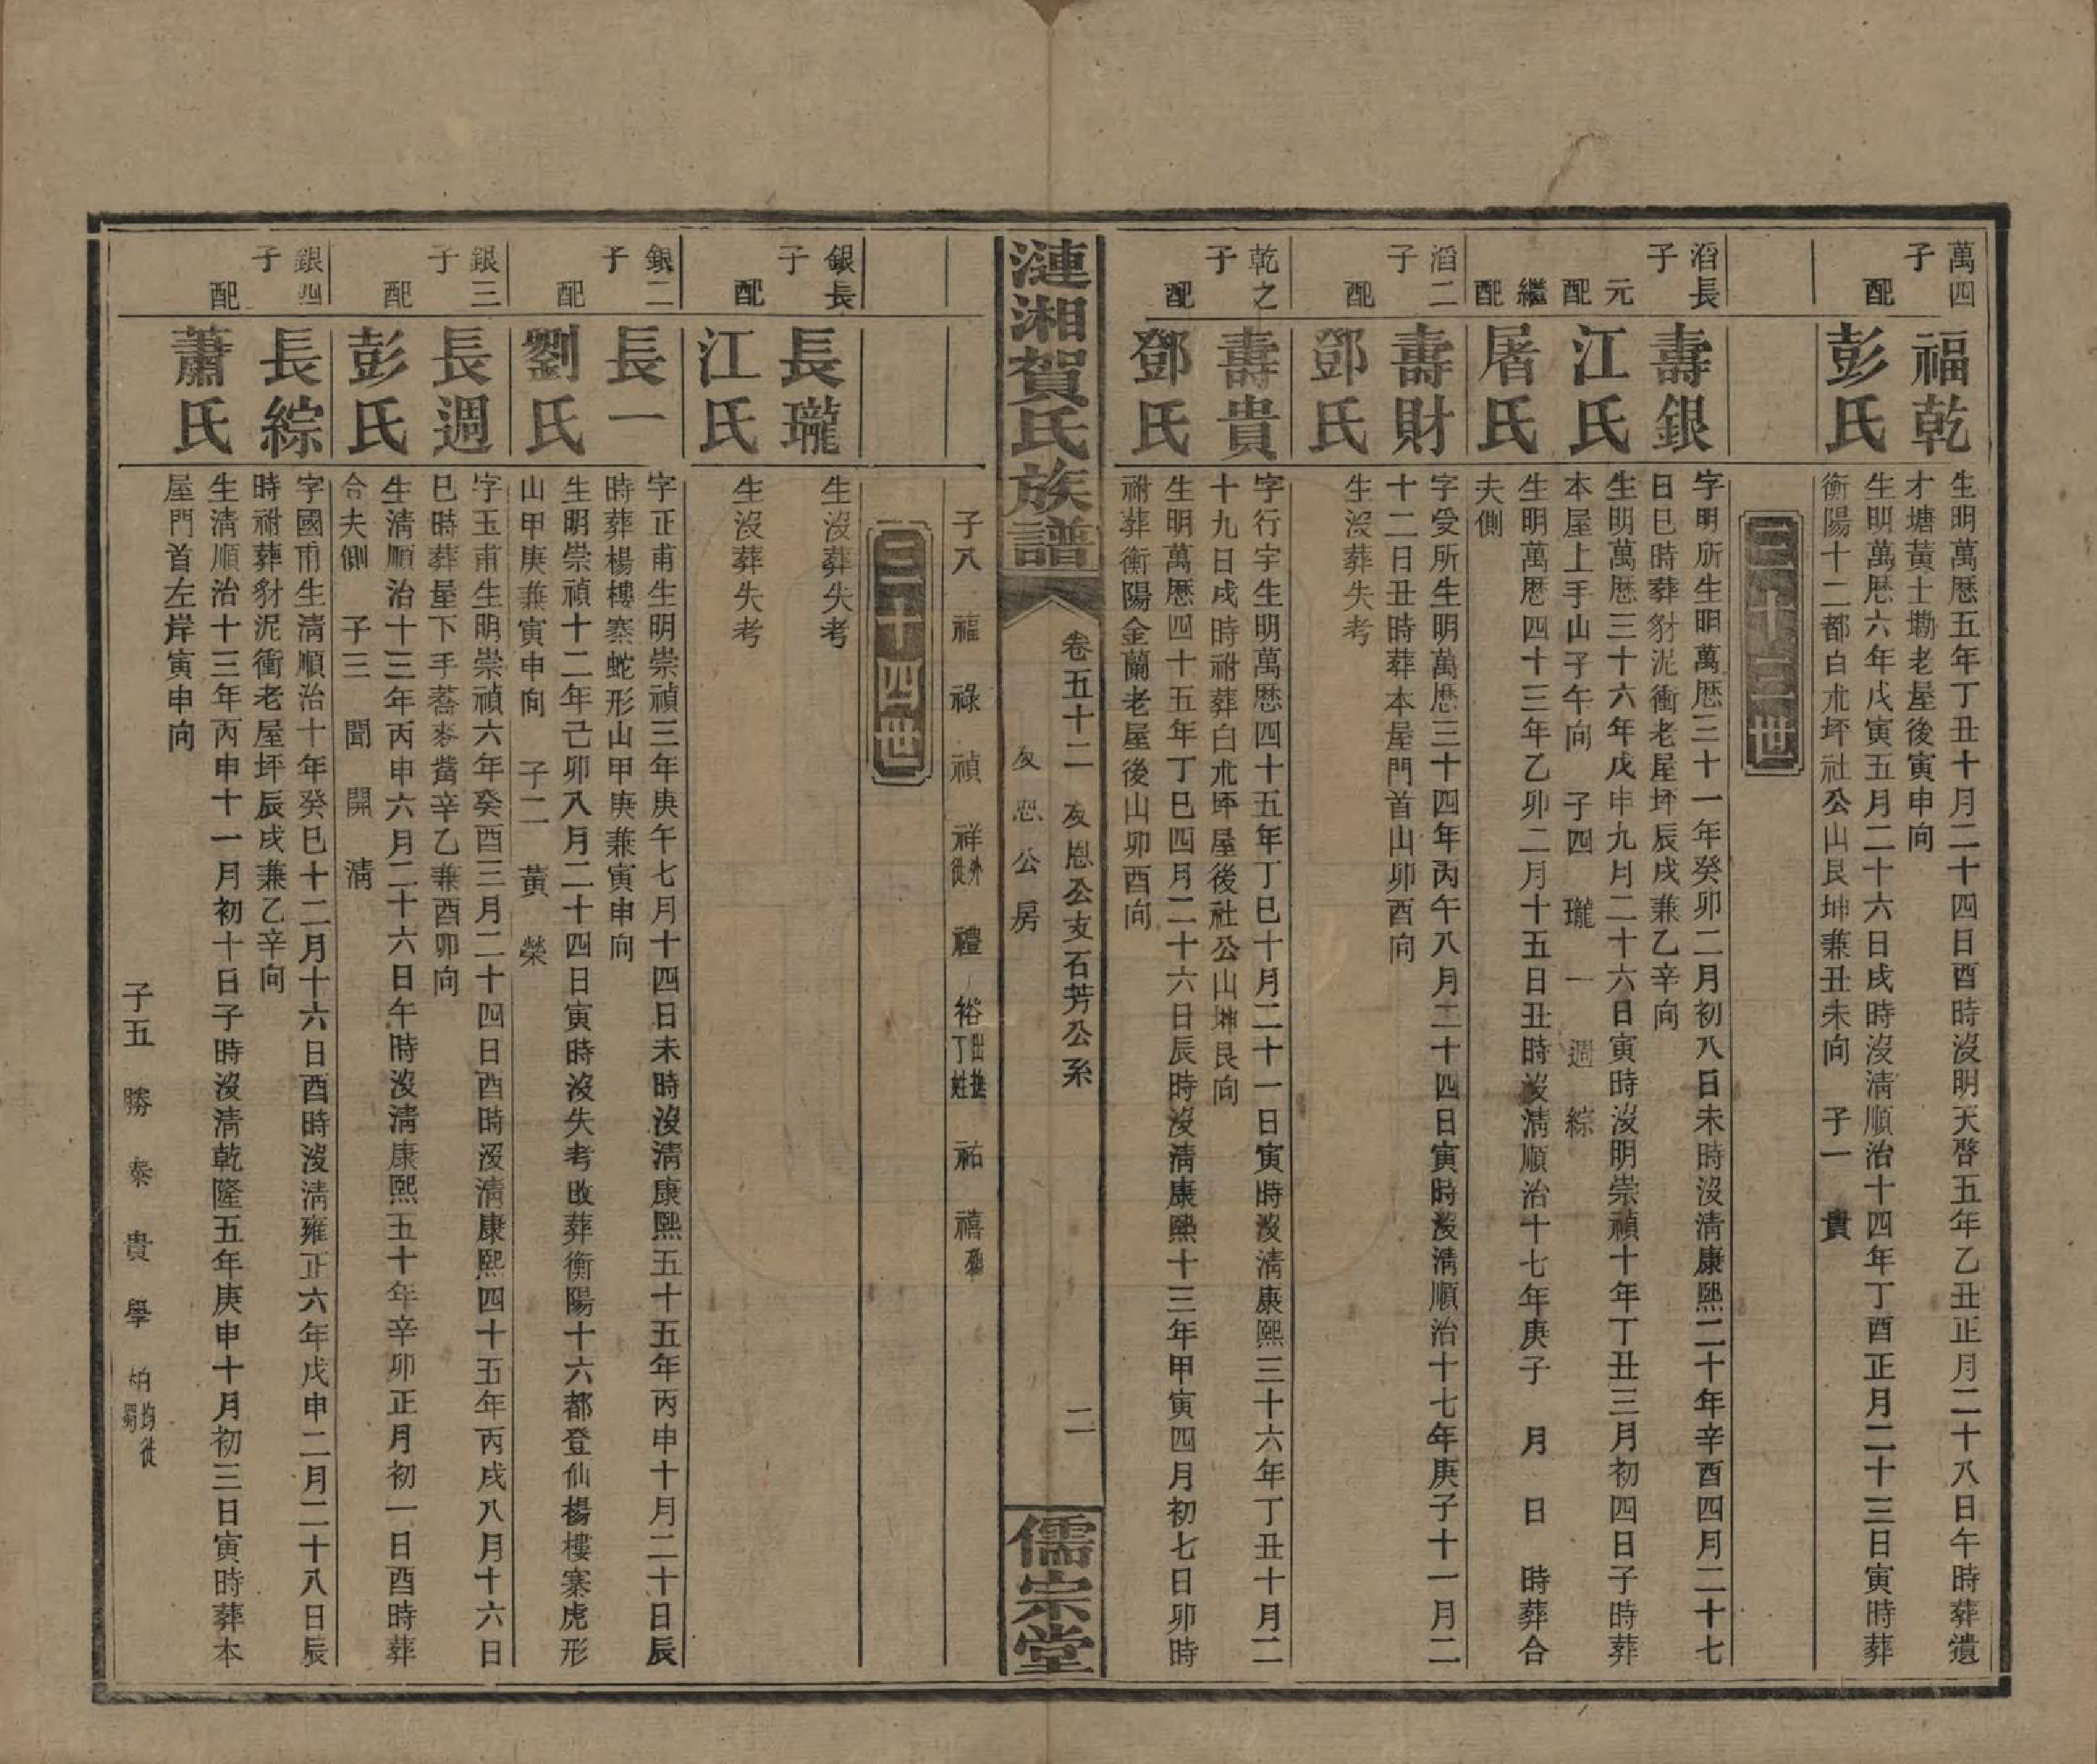 萬四子 福乾 生明萬厯五年丁丑十月二十四日酉時沒明天啓五年乙丑正月二十八日午時葬遺
才塘黃士塝老屋後寅申向
配 彭氏 生明萬厯六年戊寅五月二十六日戌時沒清順治十四年丁酉正月二十三日寅時葬
衡陽十二都白朮坪社公山艮坤兼丑未向 子一 貴
三十三世
滔長子 壽銀 字明所生明萬厯三十一年癸卯二月初八日未時沒清康熙二十年辛酉四月二十七
日巳時葬豺泥衝老屋坪辰戌兼乙辛向
元配 江氏 生明萬厯三十六年戊申九月二十六日寅時沒明崇禎十年丁丑三月初四日子時葬
本屋上手山子午向 子四 瓏 一 週 綜
繼配 屠氏 生明萬厯四十三年乙卯二月十五日丑時沒清順治十七年庚子 月 日 時葬合
夫側
滔二子 壽財 字受所生明萬厯三十四年丙午八月二十四日寅時沒清順治十七年庚子十一月二
十二日丑時葬本屋門首山卯酉向
配 鄧氏 生沒葬失考
乾之子 壽貴 字行宇生明萬厯四十五年丁巳十月二十一日寅時沒清康熙三十六年丁丑十月二
十九日戌時祔葬白朮坪屋後社公山坤艮向
配 鄧氏 生明萬厯四十五年丁巳四月二十六日辰時沒清康熙十三年甲寅四月初七日卯時
祔葬衡陽金蘭老屋後山卯酉向
漣湘賀氏族譜 卷五十二 友恩公支石芳公系 二 儒宗堂
友恩公房
子八 福 祿 禎 祥外徙 禮 裕出撫丁姓 祐 禧
三十四世
銀長子 長瓏 生沒葬失考
配 江氏 生沒葬失考
銀二子 長一 字正甫生明崇禎三年庚午七月十四日未時沒清康熙五十五年丙申十月二十日辰
時葬楊樓寨蛇形山甲庚兼寅申向
配 劉氏 生明崇禎十二年己卯八月二十四日寅時沒失考敗葬衡陽十六都登仙楊樓寨虎形
山甲庚兼寅申向 子二 黃 榮
銀三子 長週 字玉甫生明崇禎六年癸酉三月二十四日酉時沒清康熙四十五年丙戌八月十六日
巳時葬屋下手蕎麥嘴辛乙兼酉卯向
配 彭氏 生清順治十三年丙申六月二十六日午時沒清康熙五十年辛卯正月初一日酉時葬
合夫側 子三 聞 開 清
銀四子 長綜 字國甫生清順治十年癸巳十二月十六日酉時沒清雍正六年戊申二月二十八日辰
時祔葬豺泥衝老屋坪辰戌兼乙辛向
配 蕭氏 生清順治十三年丙申十一月初十日子時沒清乾隆五年庚申十月初三日寅時葬本
屋門首左岸寅申向
子五 勝 泰 貴 學 柏均徙蜀